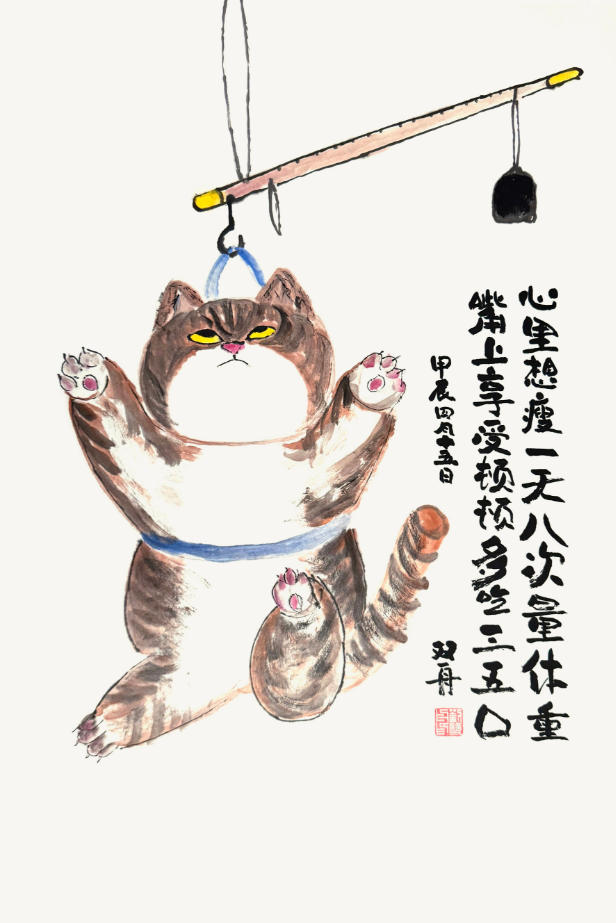 心里想瘦一天八次量体重
嘴上享受顿顿多吃三五口
甲辰四月十五日
双舟